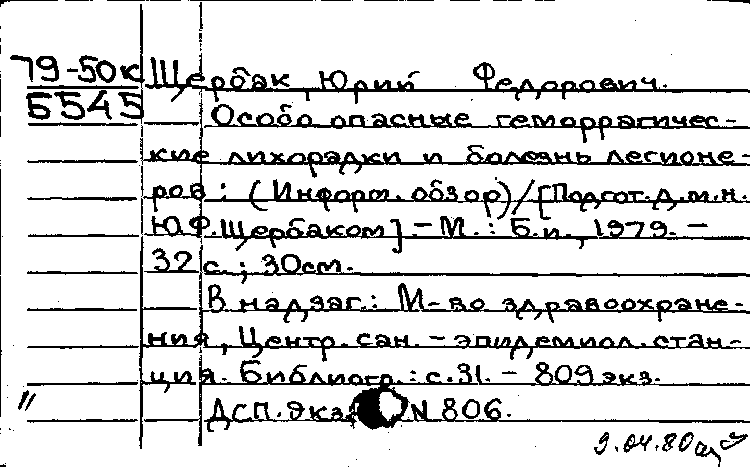 79-50к Щербак, Юрий Федорович.
5545 Особо опасные геморрагичес-
кие лихорадки и болезнь легионе-
ров: (Информ. обзор)/[Подгот. д.м.н.
Ю.Ф.Щербаком]. - М.: Б.и., 1979. -
32 с.; 30см.
В надзаг.: М-во здравоохране-
ния, Центр. сан. - эпидемиол. стан-
ция. Библиогр.: с.31. - 809 экз.
ДСП. Экз. N 806.
9.04.80